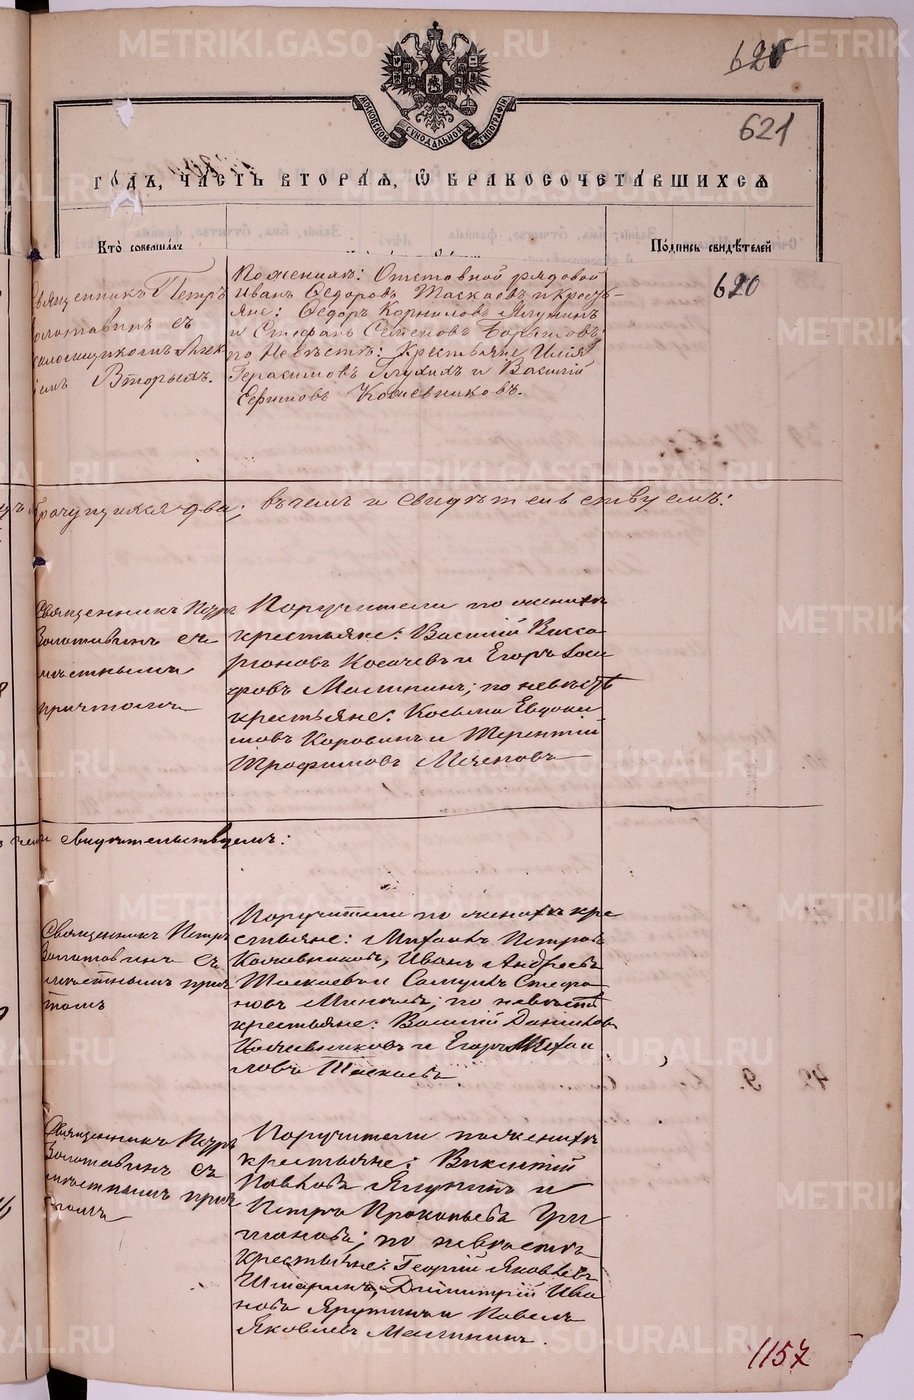 METRIKI.GASO-URAL.RU
626
МОСКОВСКОЙ СѴНОДАЛЬНОЙ ТИПОГРАФІИ
621
ГОДЪ, ЧАСТЬ ВТОРАЯ, Ѡ БРАКОСОЧЕТАВШИХСЯ
Кто совершалъ
Подпись свидѣтелей
620
Священникъ Петръ
Золотавинъ съ
Вторыхъ.
По женихѣ: Отставной рядовой
Иванъ Ѳедоровъ Таскаевъ и Кресть-
яне: Ѳедоръ Корниловъ Ягупинъ
и Стефанъ
по Невѣстѣ: Крестьяне Илія
Герасимовъ Глухихъ и Василій
Ефимовъ Кожевниковъ.
въ чемъ и свидѣтельствуемъ:
Священникъ Петръ
Золотавинъ съ
мѣстнымъ
причтомъ
Поручители по женихѣ
крестьяне: Василій Висса-
ріоновъ Косачевъ и Егоръ Іоси-
фовъ Малининъ; по невѣстѣ
крестьяне: Косьма Евдоки-
мовъ Коровинъ и Терентій
Трофимовъ
въ чемъ и свидѣтельствуемъ:
Священникъ Петръ
Золотавинъ съ
мѣстнымъ прич-
томъ
Поручители по женихѣ кре
стьяне: Михаилъ Петровъ
Кожевниковъ, Иванъ Андреевъ
Таскаевъ и Самуилъ Стефа
новъ по невѣстѣ
крестьяне: Василій Даниловъ
Кожевниковъ и Егоръ Михаи
ловъ Таскаевъ
Священникъ Петръ
Золотавинъ съ
мѣстнымъ прич
томъ
Поручители по женихѣ
крестьяне: Викентій
Павловъ Ягупинъ и
Петръ Прокопьевъ
по невѣстѣ
крестьяне: Георгій Яковлевъ
Шмаринъ, Димитрій Ива
новъ и Павелъ
Яковлевъ Малининъ.
1157